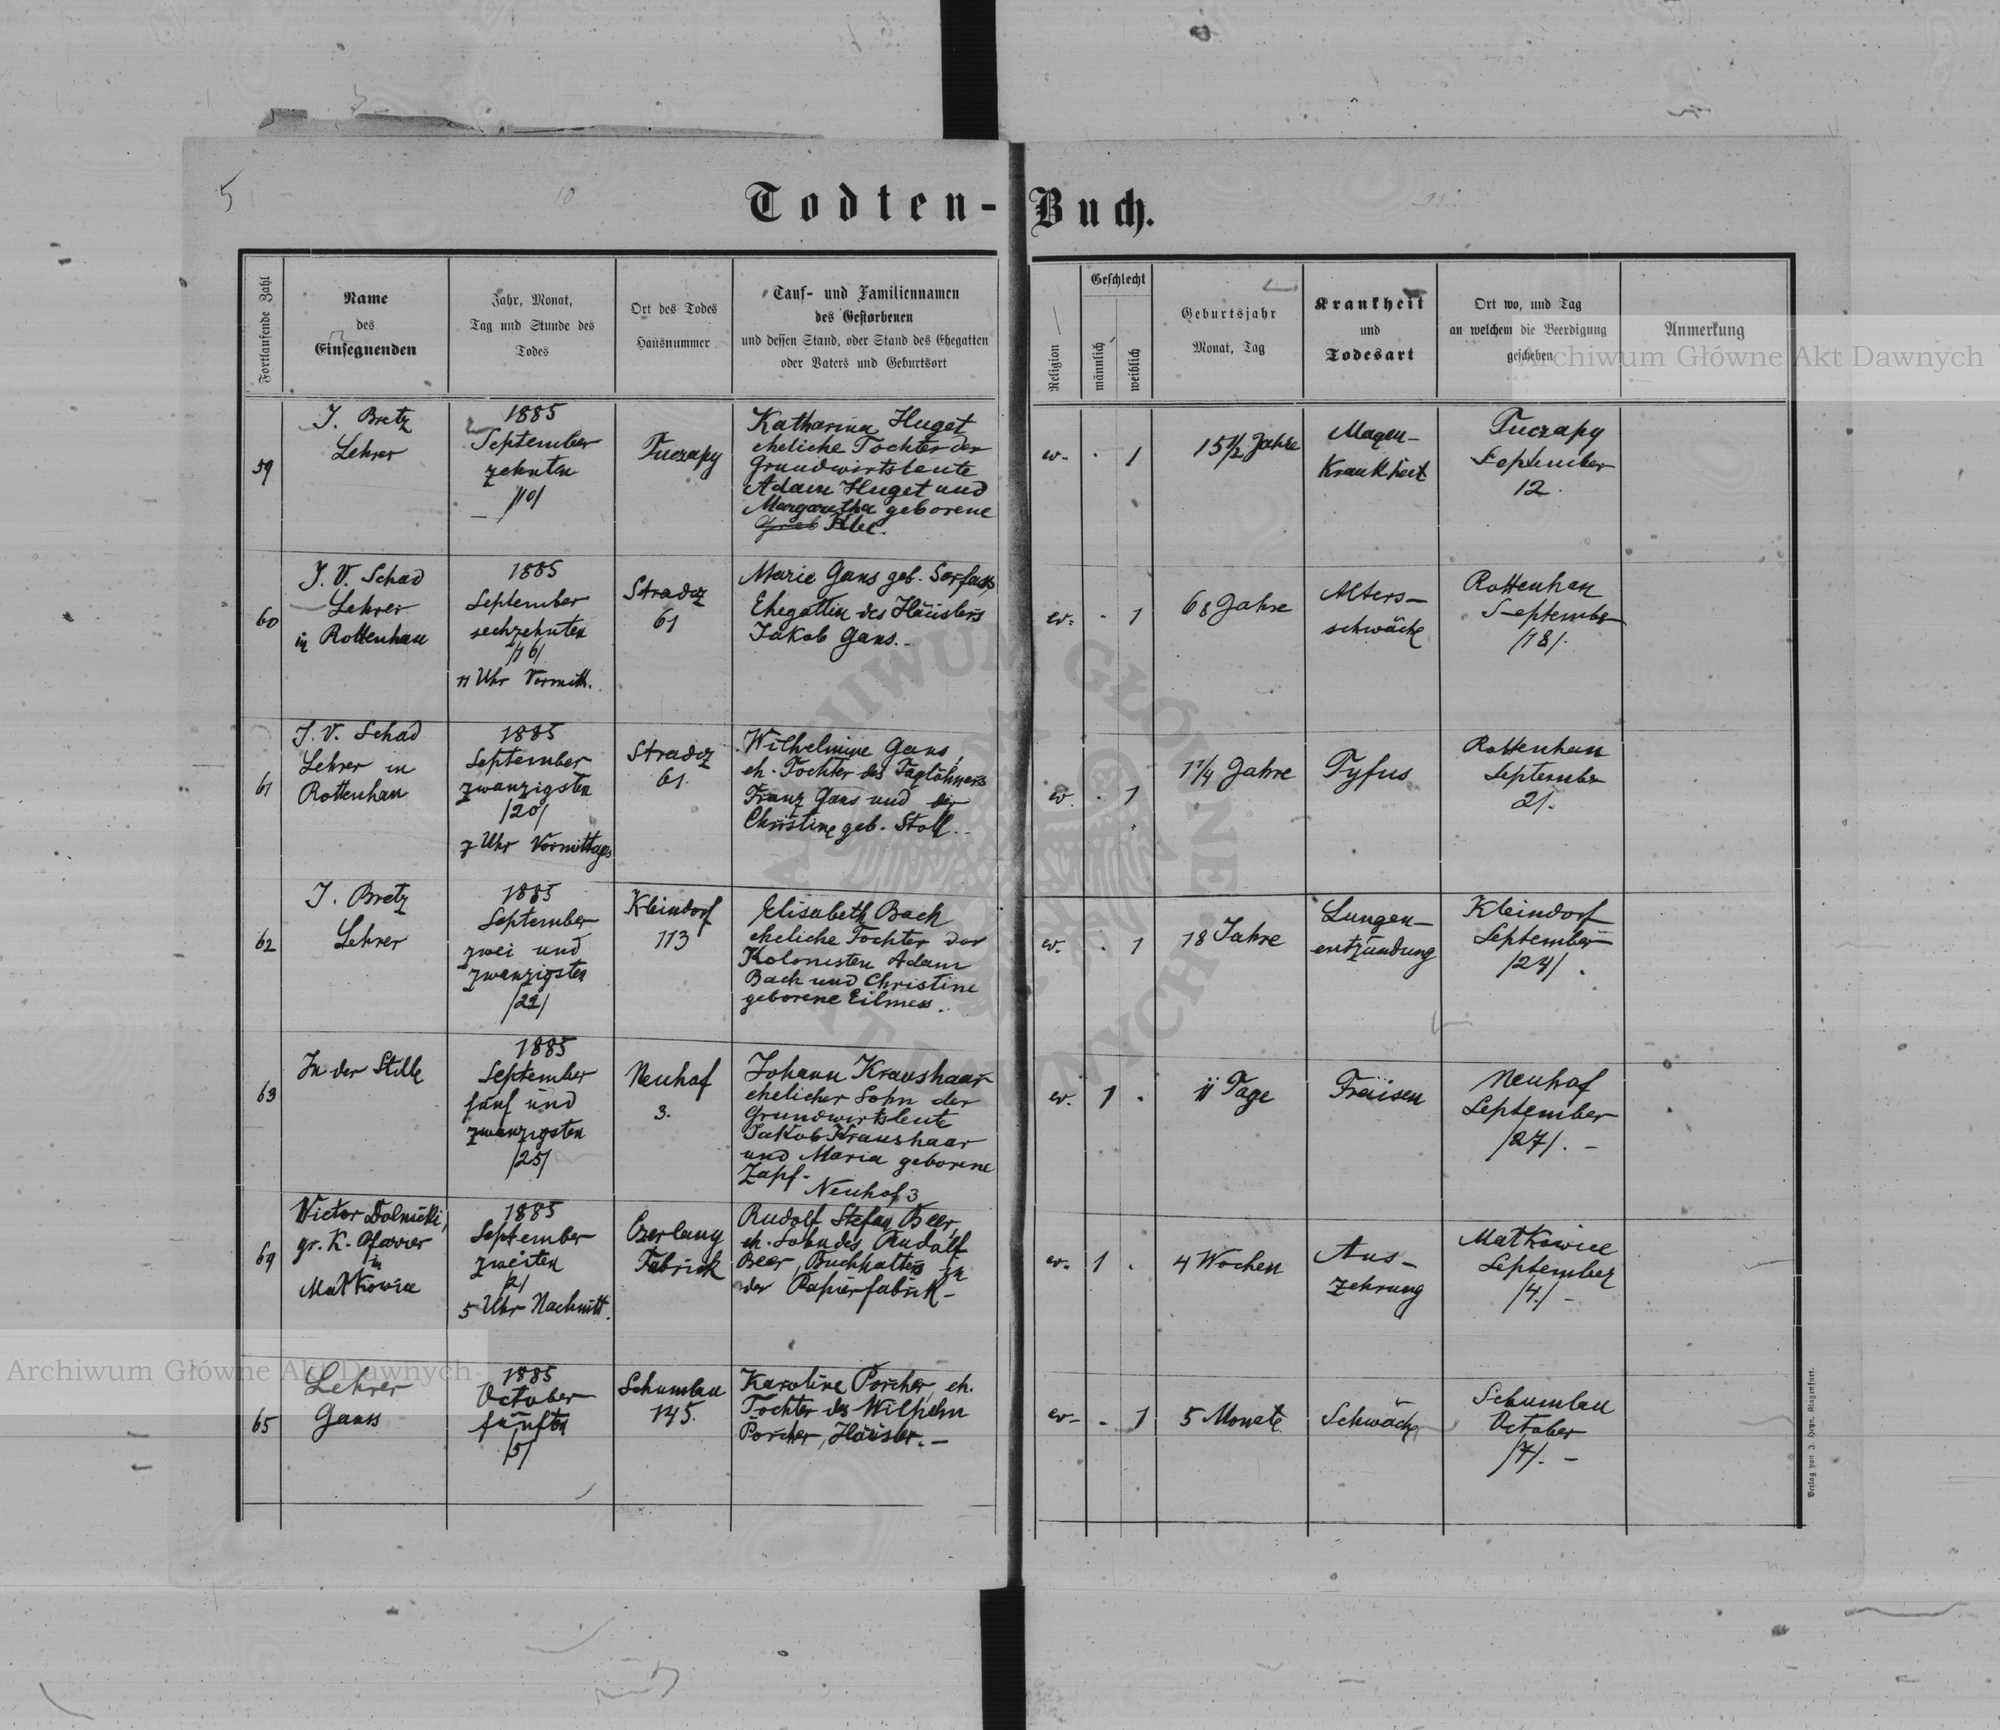 5
10
Todten-Buch.
Fortlaufende Zahl
Name
des
Einsegnenden
Jahr, Monat,
Tag und Stunde des
Todes
Ort des Todes
Hausnummer
Tauf- und Familiennamen
des Gestorbenen
und dessen Stand, oder Stand des Ehegatten
oder Vaters und Geburtsort
Religion
Geschlecht
männlich
weiblich
Geburtsjahr
Monat, Tag
Krankheit
und
Todesart
Ort wo, und Tag
an welchem die Beerdigung
geschehen
Anmerkung
59
J. Bretz
Lehrer
1885
September
zehnten
/10/
Tuczapy
Katharina Huget
eheliche Tochter der
Grundwirtsleute
Adam Huget und
Margaretha geborene
Klee.
ev. . 1
15 1/2 Jahre
Magen-
Krankheit
Tuczapy
September
12.
60
J. V. Schad
Lehrer
in Rottenhan
1885
September
sechzehnten
/16/
11 Uhr Vormitt.
Stradcz
61
Marie Gans geb. Serfass
Ehegattin des Häuslers
Jakob Gans.-
ev. . 1
68 Jahre
Alters-
schwäche
Rottenhan
September
/18/.
61
J. V. Schad
Lehrer in
Rottenhan
1885
September
zwanzigsten
/20/
7 Uhr Vormittags
Stradcz
61.
Wilhelmine Gans,
eh. Tochter des Taglöhners
Franz Gans und der
Christine geb. Stoll.-
ev. . 1
1 1/4 Jahre
Tyfus
Rottenhan
September
21.
62
J. Bretz
Lehrer
1885
September
zwei und
zwanzigsten
/22/
Kleindorf
113
Elisabeth Bach
eheliche Tochter der
Kolonisten Adam
Bach und Christine
geborene Eilmes.
ev. . 1
18 Jahre
Lungen-
entzündung
Kleindorf
September
/24/.
63
In der Stille
1885
September
fünf und
zwanzigsten
/25/
Neuhof
3.
Johann Kraushaar
ehelicher Sohn der
Grundwirtsleute
Jakob Kraushaar
und Maria geborene
Zapf.-
Neuhof 3
ev. 1 .
11 Tage
Fräisen
Neuhof
September
/27/.-
64
Victor Dolnicki,
gr. K. Pfarrer
in
Matkowice
1885
September
zweiten
/2/
5 Uhr Nachmitt.
Czerlany
Fabrick
Rudolf Stefan Beer,
eh. Sohn des Rudolf
Beer, Buchhalters in
der Papierfabrik-
ev. 1 .
4 Wochen
Aus-
zehrung
Matkowice
September
/4/-
65
Lehrer
Ganss
1885
October
fünften
/5/
Schumlau
145.
Karoline Porcher, eh.
Tochter des Wilhelm
Porcher, Häusler.-
ev. . 1
5 Monate
Schwäche
Schumlau
October
/7/.-
Verlag von J. Heyn, Klagenfurt.
Archiwum Główne Akt Dawnych
Archiwum Główne Akt Dawnych
ARCHIWUM GŁÓWNE AKT DAWNYCH